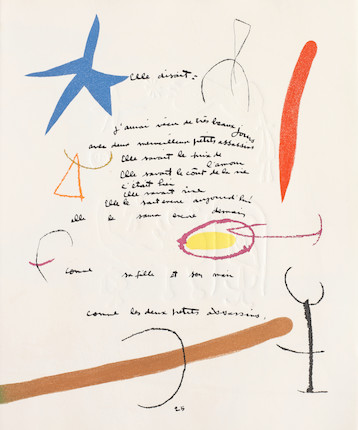 Elle disait :
J'aurai vécu de très beaux jours
avec deux merveilleux petits assassins
Elle savait le prix de
l'amour
Elle savait le coût de la vie
c'était hier
Elle savait rire
Elle le sait encore aujourd'hui
elle le saura encore demain
comme sa fille et son mari
comme les deux petits assassins.
28